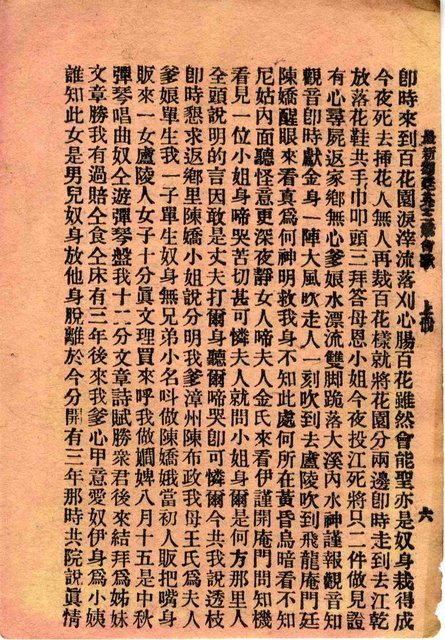 卽時來到百花園淚滓流落刈心腸百花雖然會能聖亦是奴身栽得成
今夜死去揷花人無人再裁百花樣就將花園分兩邊卽時走到去江乾
放落花鞋共手巾叩頭三拜答母恩小姐今夜投江死將只二件做見證
有心尋屍返家鄉無心爹娘水漂流雙脚跪落大溪內水神謹報觀音知
觀音卽時獻金身一陣大風吹走人一刻吹到去盧陵吹到飛龍庵門廷
陳嬌醒眼來看眞爲何神明救我身不知此處何所在黃昏烏暗看不知
尼姑內面聽怪意更深夜靜女人啼夫人金氏來看伊謹開庵門問知機
看見一位小姐身啼哭苦切甚可憐夫人就問小姐身爾是何方那里人
全頭說明的言因敢是丈夫打爾身聽爾啼哭卽可憐爾今共我說透枝
卽時懇求返鄉里陳嬌小姐說分明我爹漳州陳布政我母王氏爲夫人
爹娘單生我一子單生奴身無兄弟小名呌做陳嬌娥當初人販把嘴身
販來一女盧陵人女子十分眞文理買來呼我做嫺婢八月十五是中秋
彈琴唱曲奴仝遊彈琴盤我十二分文章詩賦勝衆君後來結拜爲姊妹
文章勝我有過賠仝食仝床有三年後來我爹心甲意愛奴伊爲小姨
誰知此女是男兒奴身放他身脫離於今分開有三年那時共院說眞情
上册
六